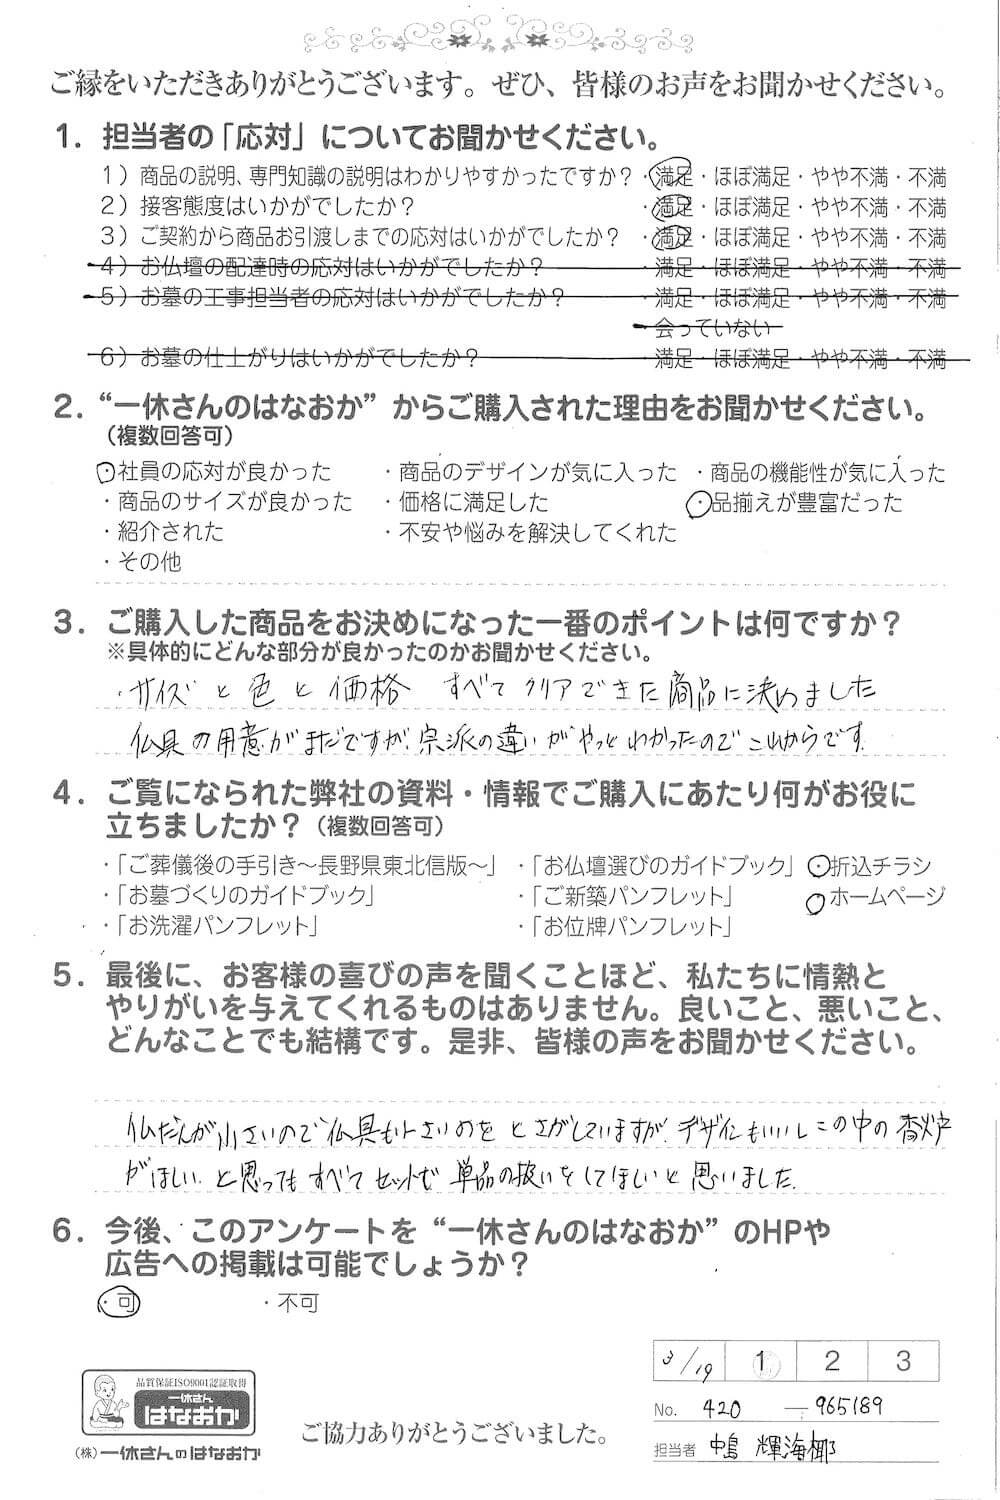 ご縁をいただきありがとうございます。ぜひ、皆様のお声をお聞かせください。
1. 担当者の「応対」についてお聞かせください。
1）商品の説明、専門知識の説明はわかりやすかったですか？・満足・ほぼ満足・やや不満・不満
2）接客態度はいかがでしたか？ ・満足・ほぼ満足・やや不満・不満
3）ご契約から商品お引渡しまでの応対はいかがでしたか？ ・満足・ほぼ満足・やや不満・不満
4）お仏壇の配達時の応対はいかがでしたか？ ・満足・ほぼ満足・やや不満・不満
5）お墓の工事担当者の応対はいかがでしたか？ ・満足・ほぼ満足・やや不満・不満
・会っていない
6）お墓の仕上がりはいかがでしたか？ ・満足・ほぼ満足・やや不満・不満
2. “一休さんのはなおか”からご購入された理由をお聞かせください。
（複数回答可）
・社員の応対が良かった ・商品のデザインが気に入った ・商品の機能性が気に入った
・商品のサイズが良かった ・価格に満足した ・品揃えが豊富だった
・紹介された ・不安や悩みを解決してくれた
・その他
3. ご購入した商品をお決めになった一番のポイントは何ですか？
※具体的にどんな部分が良かったのかお聞かせください。
・サイズと色と価格 すべてクリアできた商品に決めました
仏具の用意がまだですが、宗派の違いがやっとわかったのでこれからです。
4. ご覧になられた弊社の資料・情報でご購入にあたり何がお役に
立ちましたか？（複数回答可）
・「ご葬儀後の手引き～長野県東北信版～」 ・「お仏壇選びのガイドブック」 ・折込チラシ
・「お墓づくりのガイドブック」 ・「ご新築パンフレット」 ・ホームページ
・「お洗濯パンフレット」 ・「お位牌パンフレット」
5. 最後に、お客様の喜びの声を聞くことほど、私たちに情熱と
やりがいを与えてくれるものはありません。良いこと、悪いこと、
どんなことでも結構です。是非、皆様の声をお聞かせください。
仏だんが小さいので仏具も小さいのをとさがしていますが、デザインもいいしこの中の香炉
がほしい、と思ってもすべてセットで 単品の扱いをしてほしいと思いました。
6. 今後、このアンケートを“一休さんのはなおか”のHPや
広告への掲載は可能でしょうか？
・可 ・不可
3/19 1 2 3
品質保証ISO9001認証取得
一休さん
はなおか
（株）一休さんのはなおか
ご協力ありがとうございました。
No. 420 — 965189
担当者 中島 輝海椰